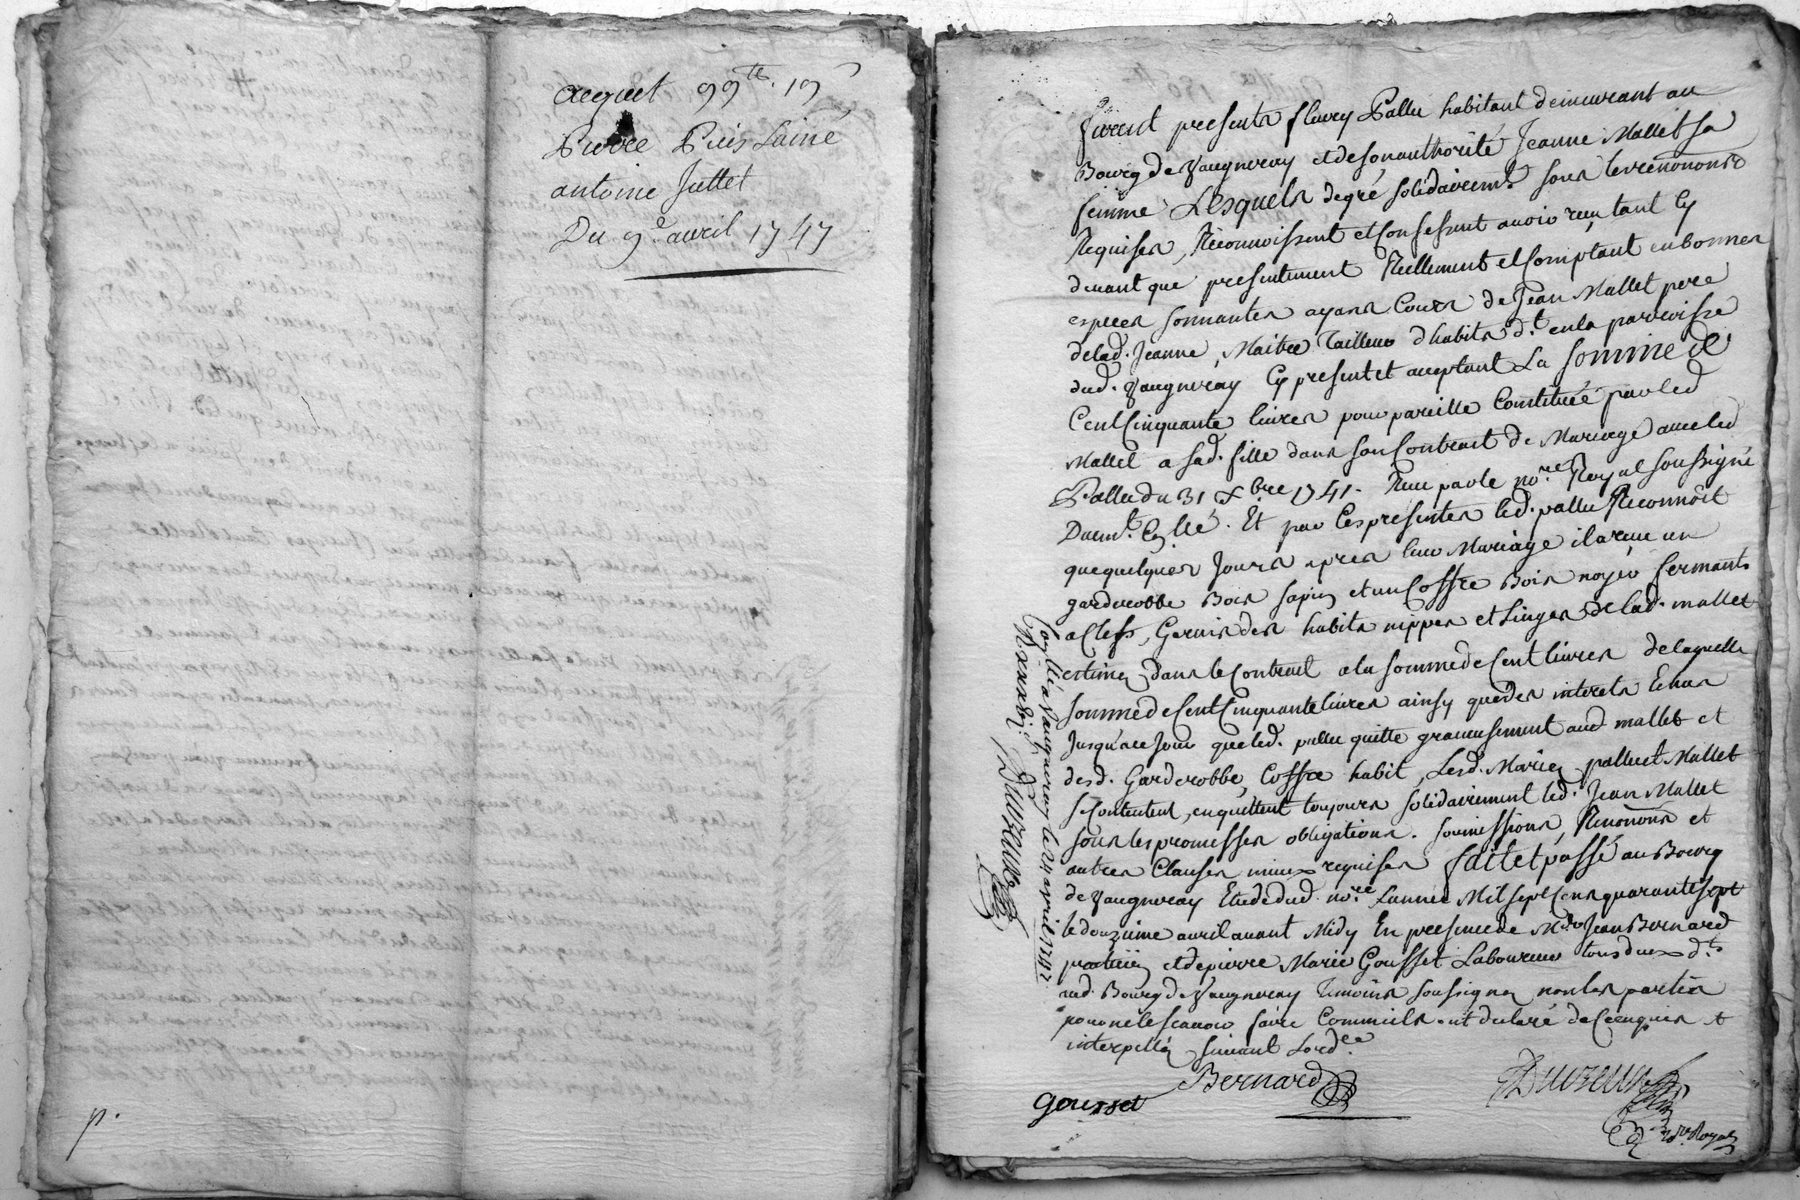 acquet 99ᵗᵗ. 19
Pierre Puis Lainé
antoine Juttet
Du 9ᵉ avril 1747
p.
furent presents fleury Pallu habitant demeurant au
Bourg de Vaugneray et de son authorité Jeanne Mallet sa
femme Lesquels de gré solidairemᵗ sous les renononsᵒ
Requises, Reconnoissent et Confessent avoir reçu tant Cy
devant que presentement Reellement et Comptant en bonnes
especes sonnantes ayans Cours de Jean Mallet pere
de lad. Jeanne, Maitre Tailleur d'habits dᵗ en la parroisse
dud. Vaugneray Cy present et acceptant La somme de
Cent Cinquante livres pour pareille Constituée par led
Mallet a sad. fille dans son Contract de Mariage avec led
Pallu du 31 xbʳᵉ 1741. Reçu par le noʳᵉ Royal soussigné
Duemᵗ. Collé. Et par Ces presentes led. pallu Reconnoit
que quelques Jours apres leur Mariage il a reçu un
garderobbe Bois sapin et un Coffre Bois noyer fermants
a Clefs, Garnis des habits nippes et Linges de lad. mallet
estimés dans le Contract a la somme de Cent livres de laquelle
somme de Cent Cinquante livres ainsy que des interets Echus
Jusqu'a ce Jour que led. pallu quitte gracieusement aud mallet et
desd. Garderobbe, Coffre habit, Lesd. Mariés pallu et Mallet
se Contentent, en quittent toujours solidairement led. Jean Mallet
sous les promesses obligations. soumissions, Renonons et
autres Clauses mieux requises fait et passé au Bourg
de Vaugneray Etude dud. noʳᵉ L'année Mil sept Cens quarante sept
le douzieme avril avant Midy En presence de Mᵉ Jean Bernard
praticien et de pierre Marie Gousset Laboureur tous deux dᵗˢ
aud. Bourg de Vaugneray Temoins soussignés non les parties
pour ne le scavoir faire Comme ils ont declaré de Ce enquis et
interpellés suivant Lordᶜᵉ
Bernard
gousset
Duvzeul
noʳᵉ Royal
Conllé a Vaugneray le 21 avril 1747